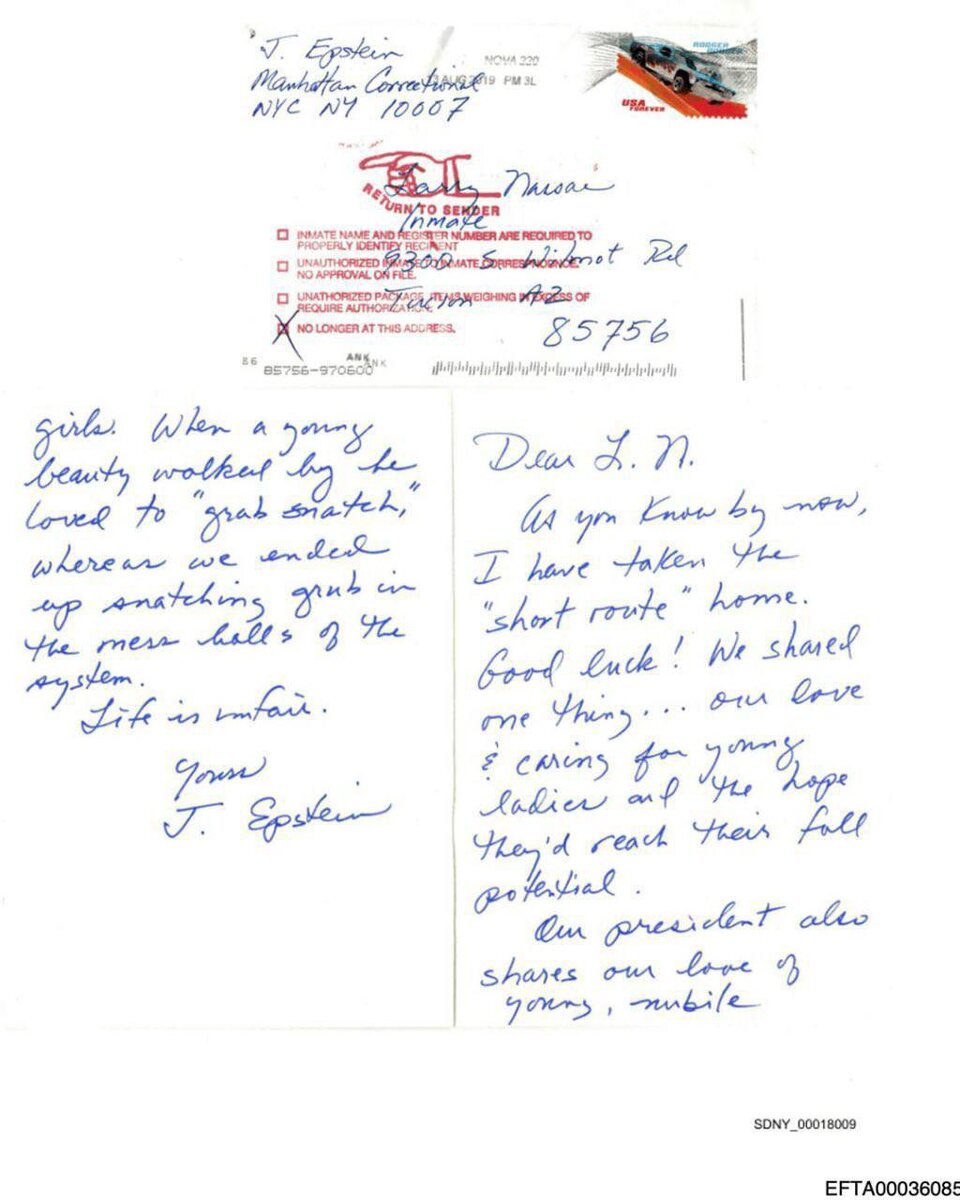 J. Epstein
Manhattan Correctional
NYC NY 10007
NOVA 220
AUG 2019 PM 3L
USA
FOREVER
RETURN TO SENDER
Larry
Inmate
9300 S. Wilmot Rd
Tucson AZ
85756
INMATE NAME AND REGISTER NUMBER ARE REQUIRED TO
PROPERLY IDENTIFY RECIPIENT
UNAUTHORIZED INMATE TO INMATE
NO APPROVAL ON FILE.
UNATHORIZED PACKAGE, ITEMS WEIGHING IN EXCESS OF
REQUIRE AUTHORIZATION.
NO LONGER AT THIS ADDRESS.
86
ANK
ANK
85756-970600
Dear L. N.
As you know by now,
I have taken the
"short route" home.
Good luck! We shared
one thing... our love
& caring for young
ladies and the hope
they'd reach their full
potential.
Our president also
shares our love of
young, nubile
girls. When a young
beauty walked by he
loved to "grab snatch,"
whereas we ended
up snatching grub in
the mess halls of the
system.
Life is unfair.
Yours
J. Epstein
SDNY_00018009
EFTA00036085